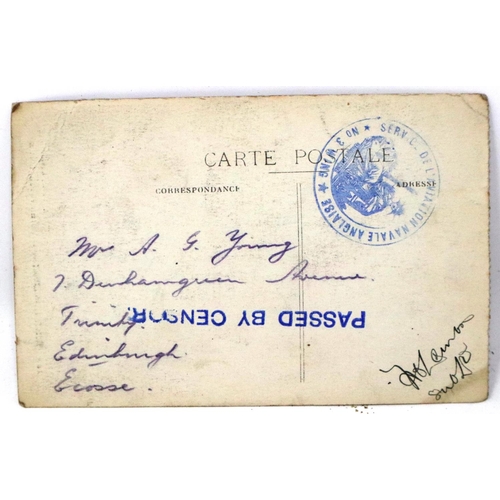 CARTE POSTALE
CORRESPONDANCE
ADRESSE
NO 3 WING ★ SERVICE DE L'AVIATION NAVALE ANGLAISE ★
Mrs A. G. Young
7 Denhamgreen Avenue.
Trinity
Edinburgh.
Ecosse.
PASSED BY CENSOR.